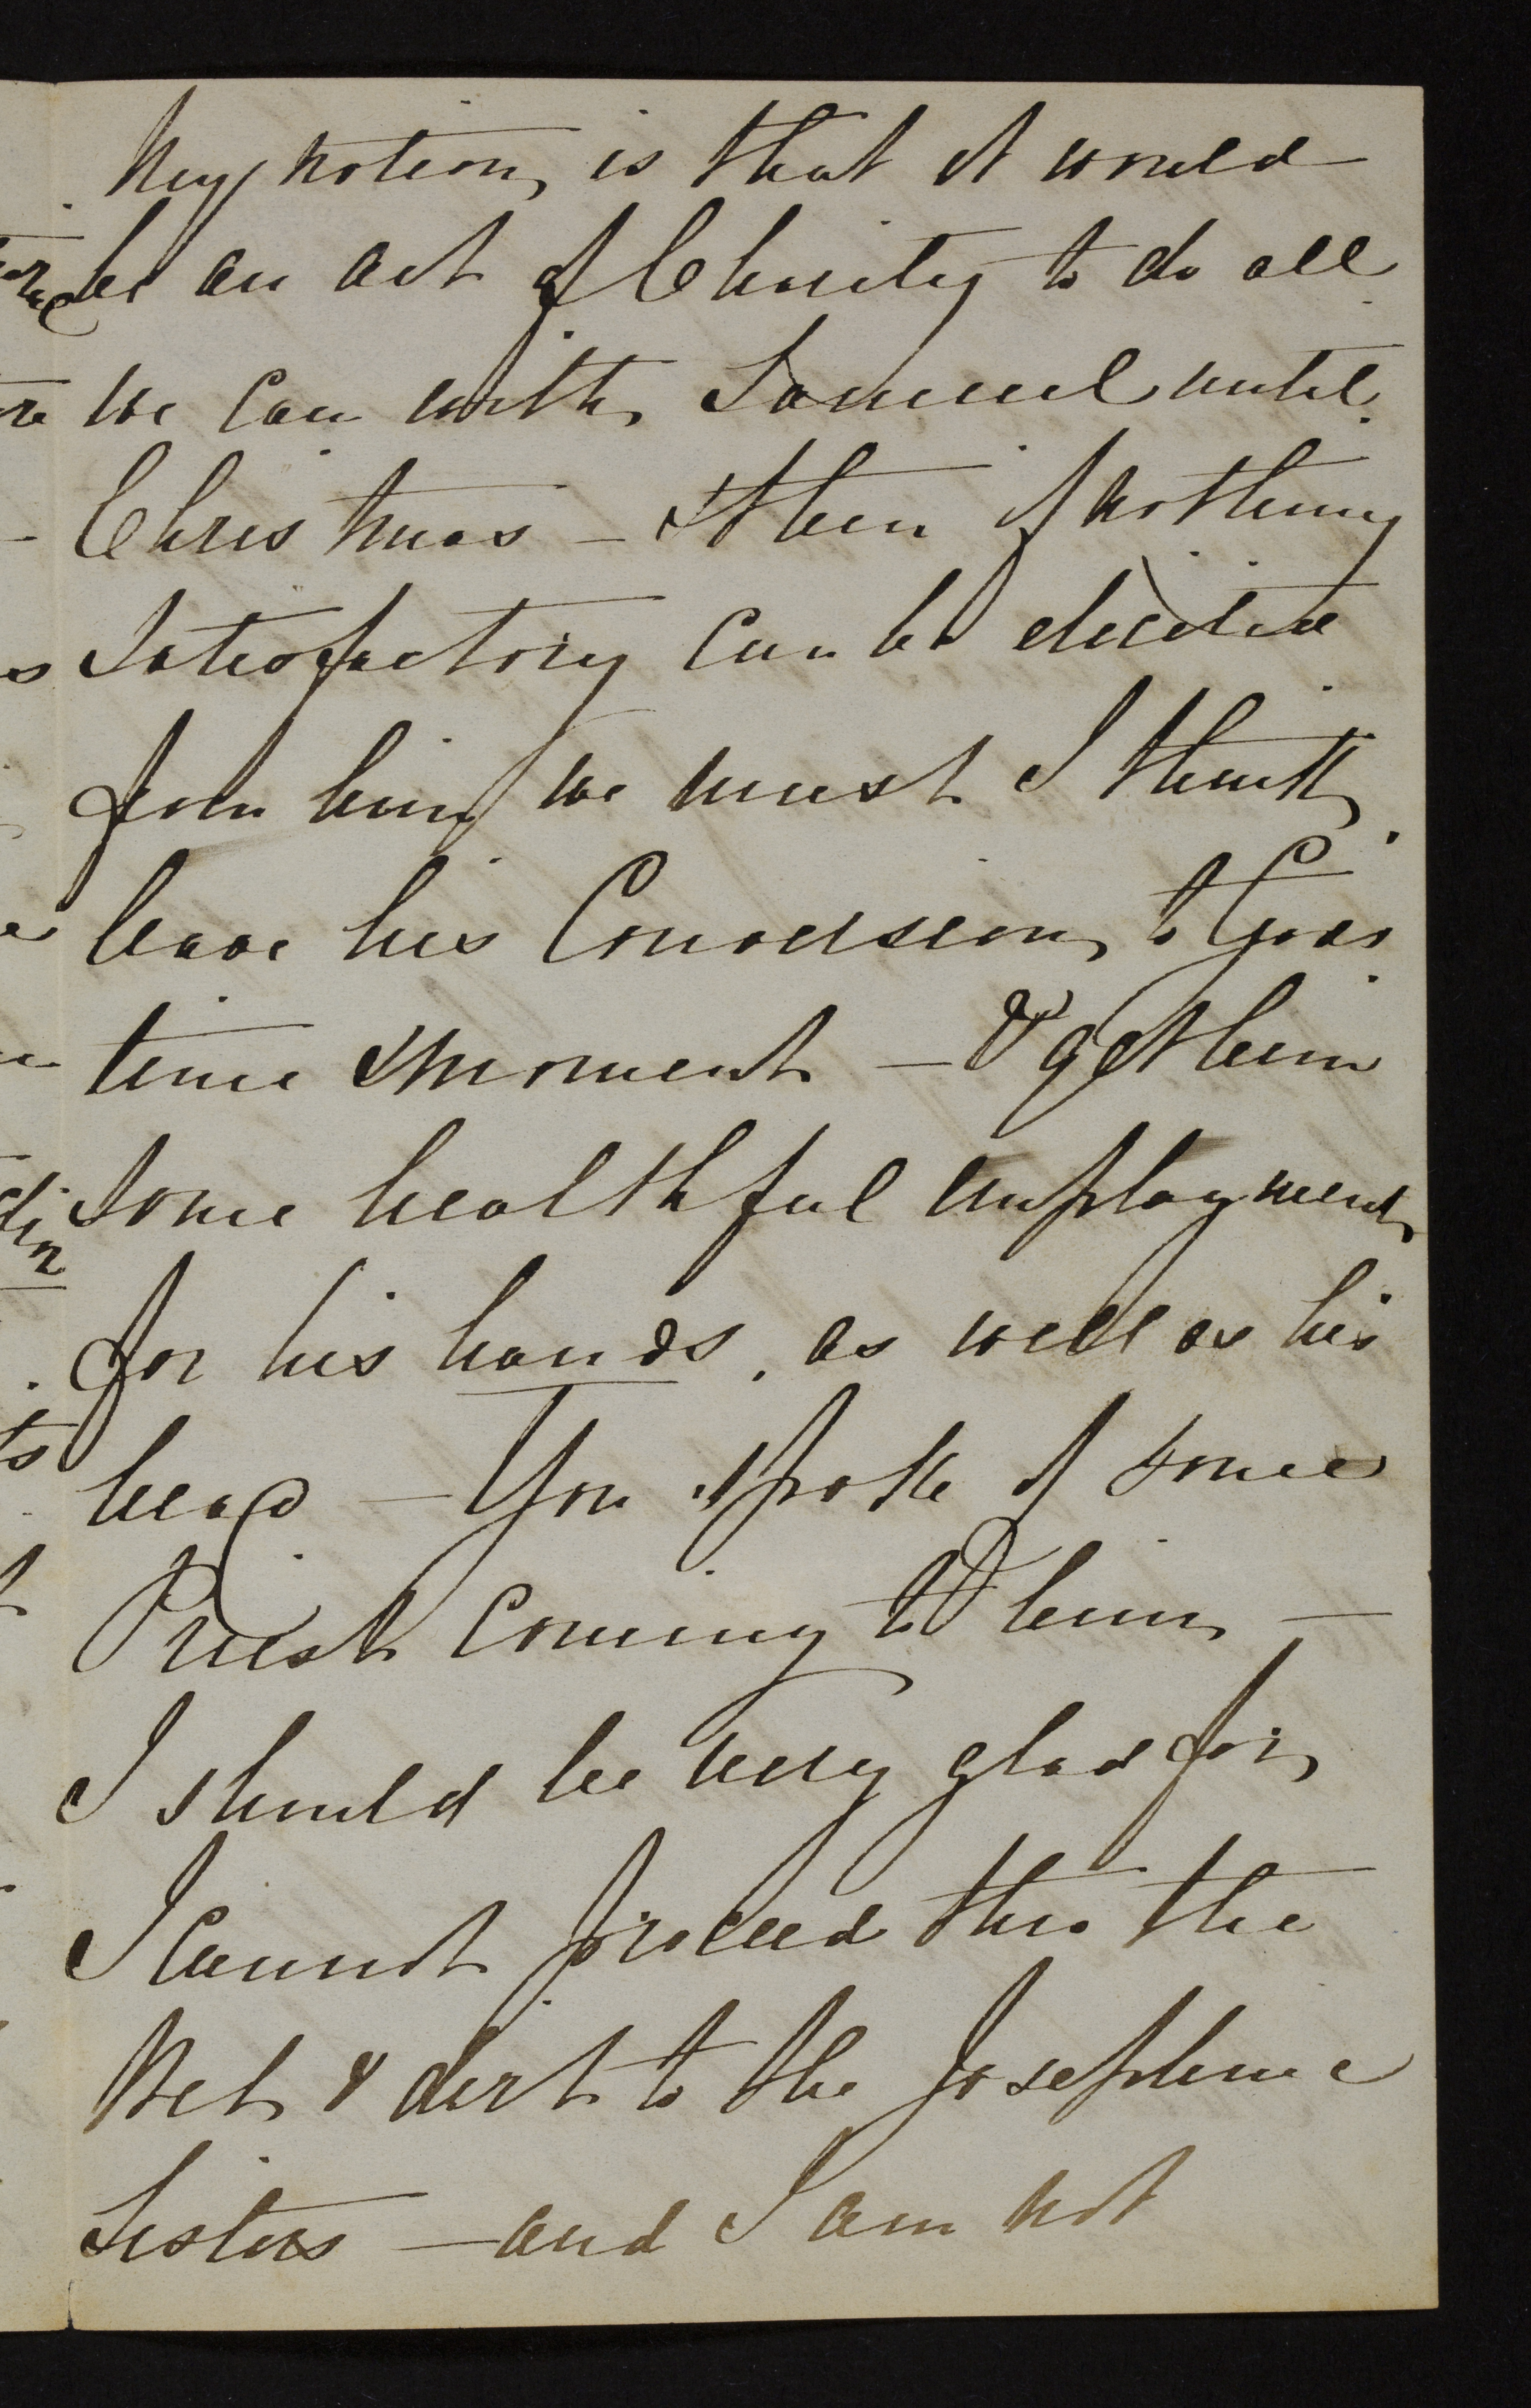 My notion is that it would
be an act of Charity to do all
we can with Samuel until
Christmas — & then if nothing
Satisfactory can be elicited
from him we must I think
leave his Conversion to Gods
time & moment — & get him
some healthful employment
for his hands, as well as his
head — You spoke of some
Priest coming to him —
I should be very glad for
I cannot proceed thro the
Wet & dirt to the Josephine
Sisters — and I am not